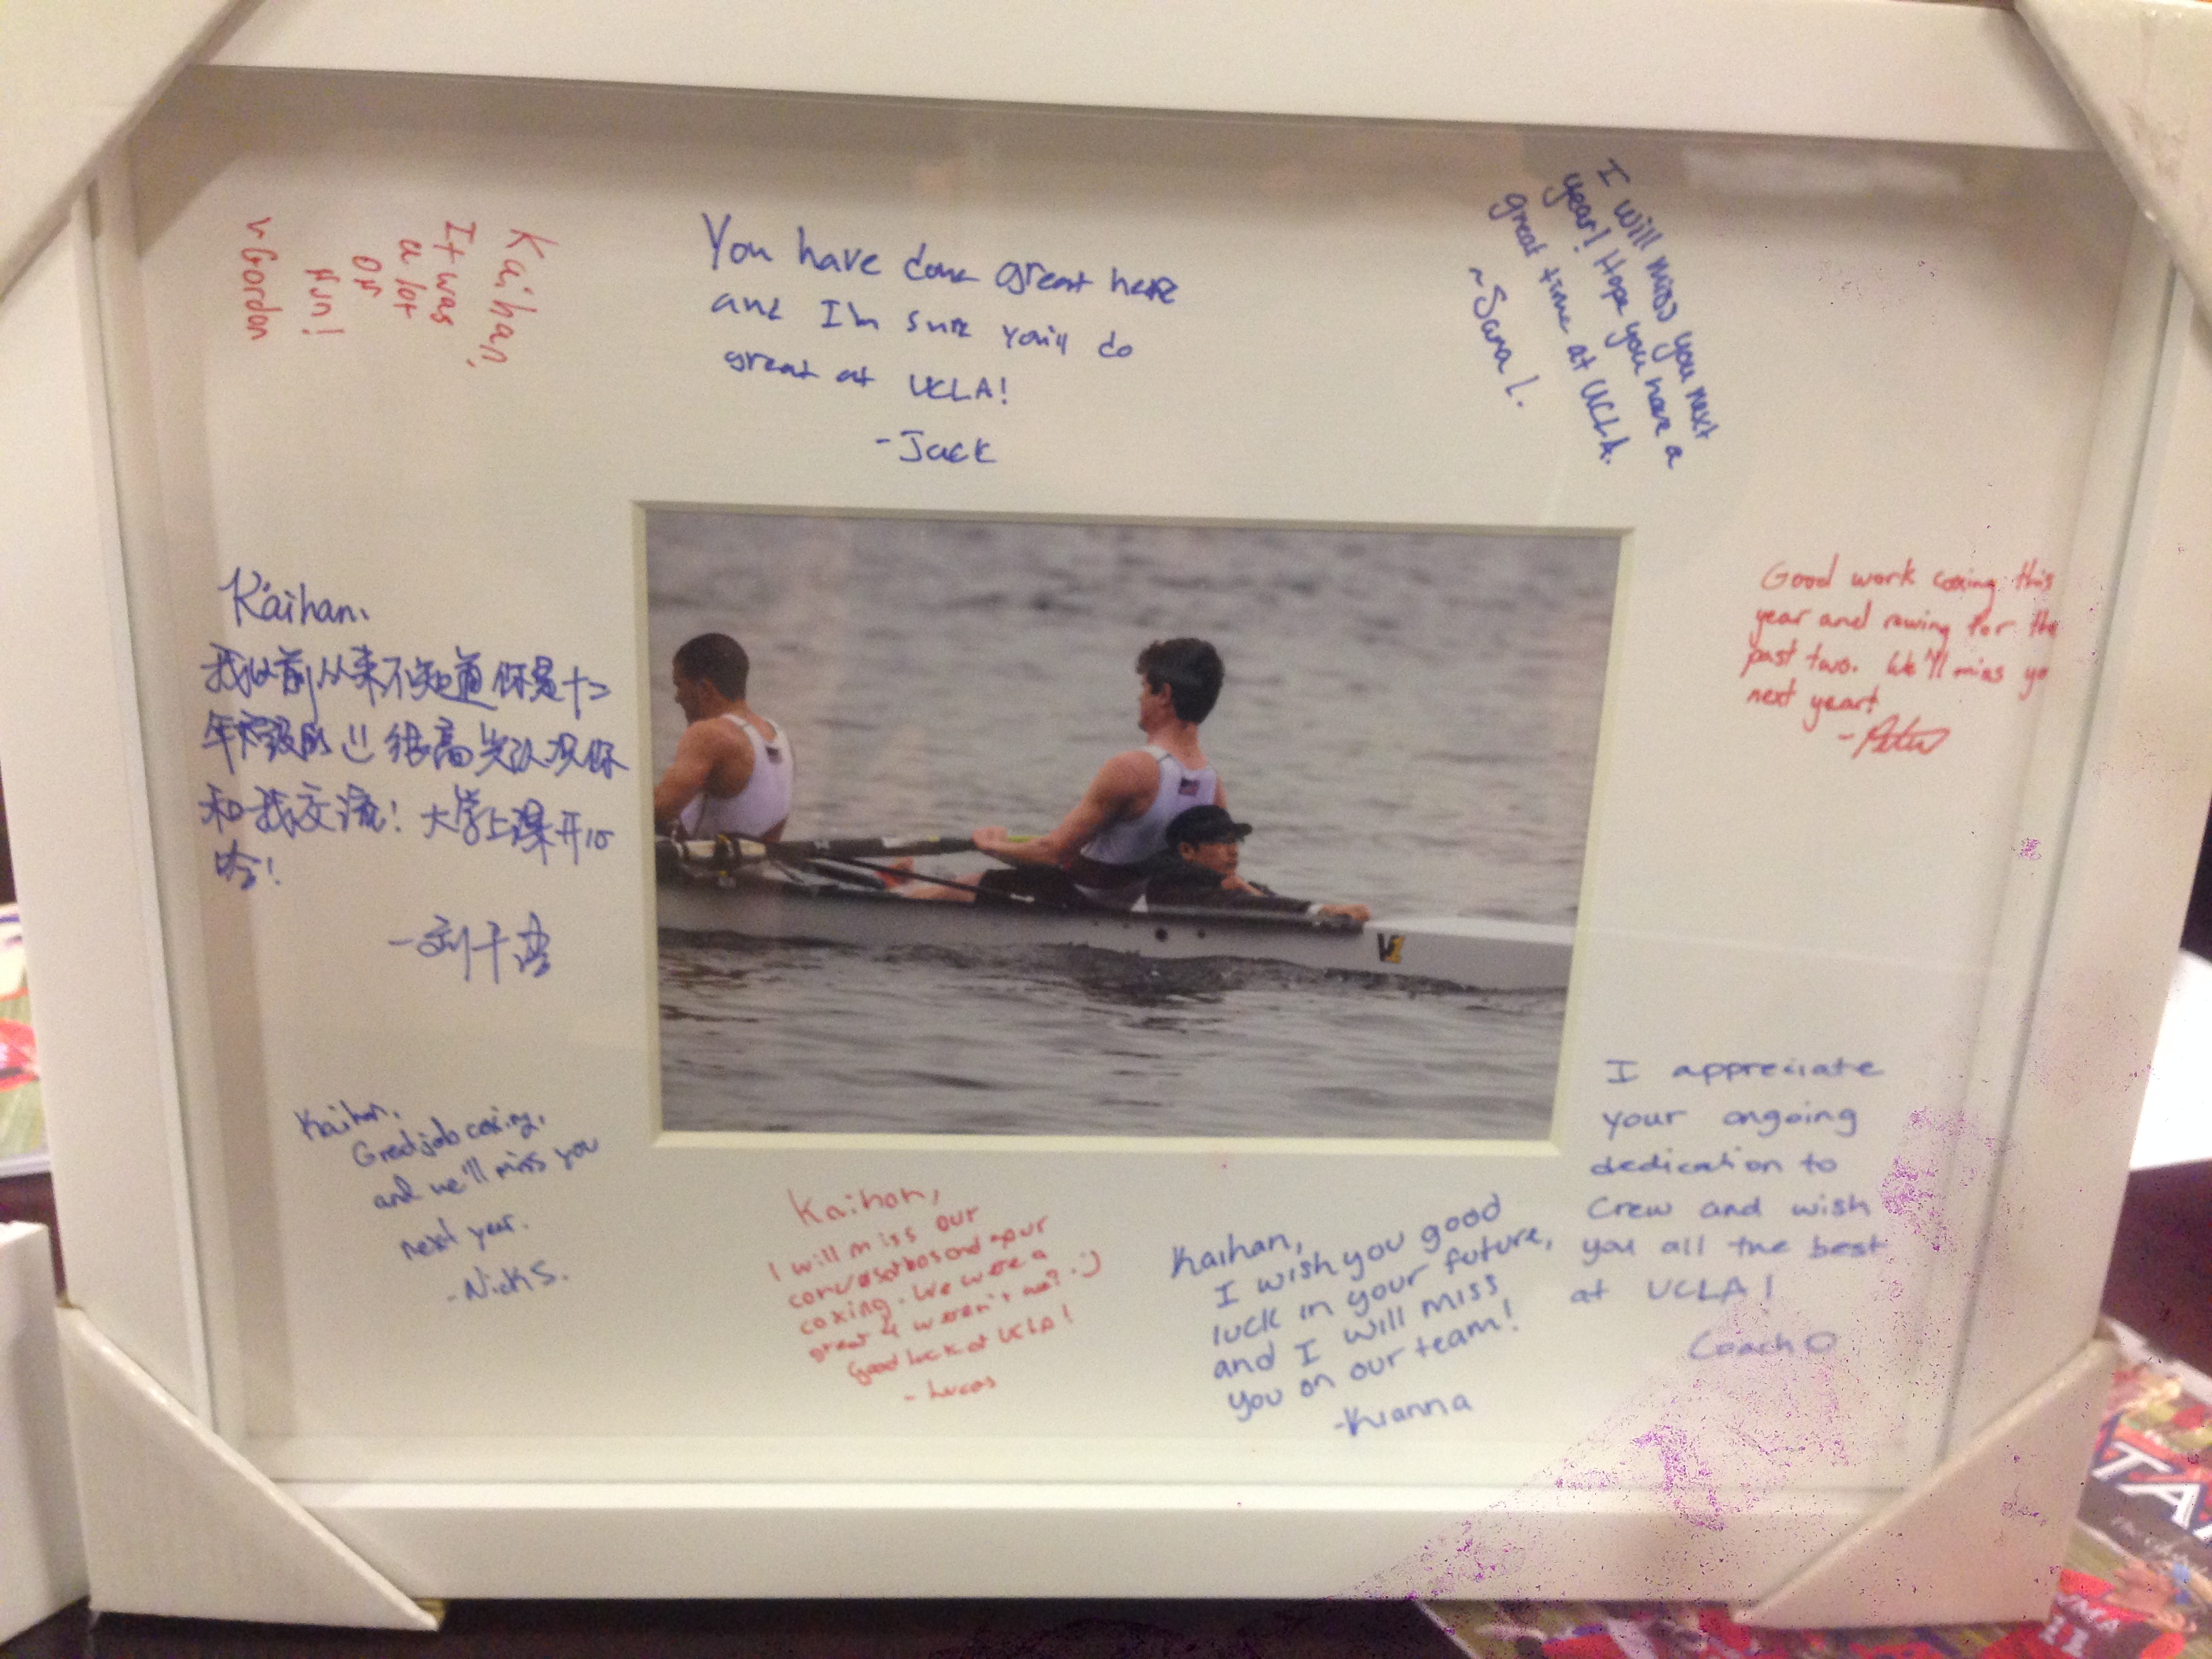 Kaihan,
It was
a lot
of
fun!
~Gordon
You have done great here
and I'm sure you'll do
great at UCLA!
-Jack
I will miss you next
year! Hope you have a
great time at UCLA.
~Sara L.
Kaihan,
我以前从来不知道你是十二
年级的 很高兴认识你
和我交流! 大学上课开心
哈!
-刘千
Good work coxing this
year and rowing for the
past two. We'll miss yo
next year!
-Peter
V1
Kaihan,
Great job coxing,
and we'll miss you
next year.
-Nick S.
Kaihan,
I will miss our
conversations and your
coxing. We were a
great 4 weren't we? :)
Good luck at UCLA!
-Lucas
Kaihan,
I wish you good
luck in your future,
and I will miss
you on our team!
-Kianna
I appreciate
your ongoing
dedication to
Crew and wish
you all the best
at UCLA!
Coach O
TA
11